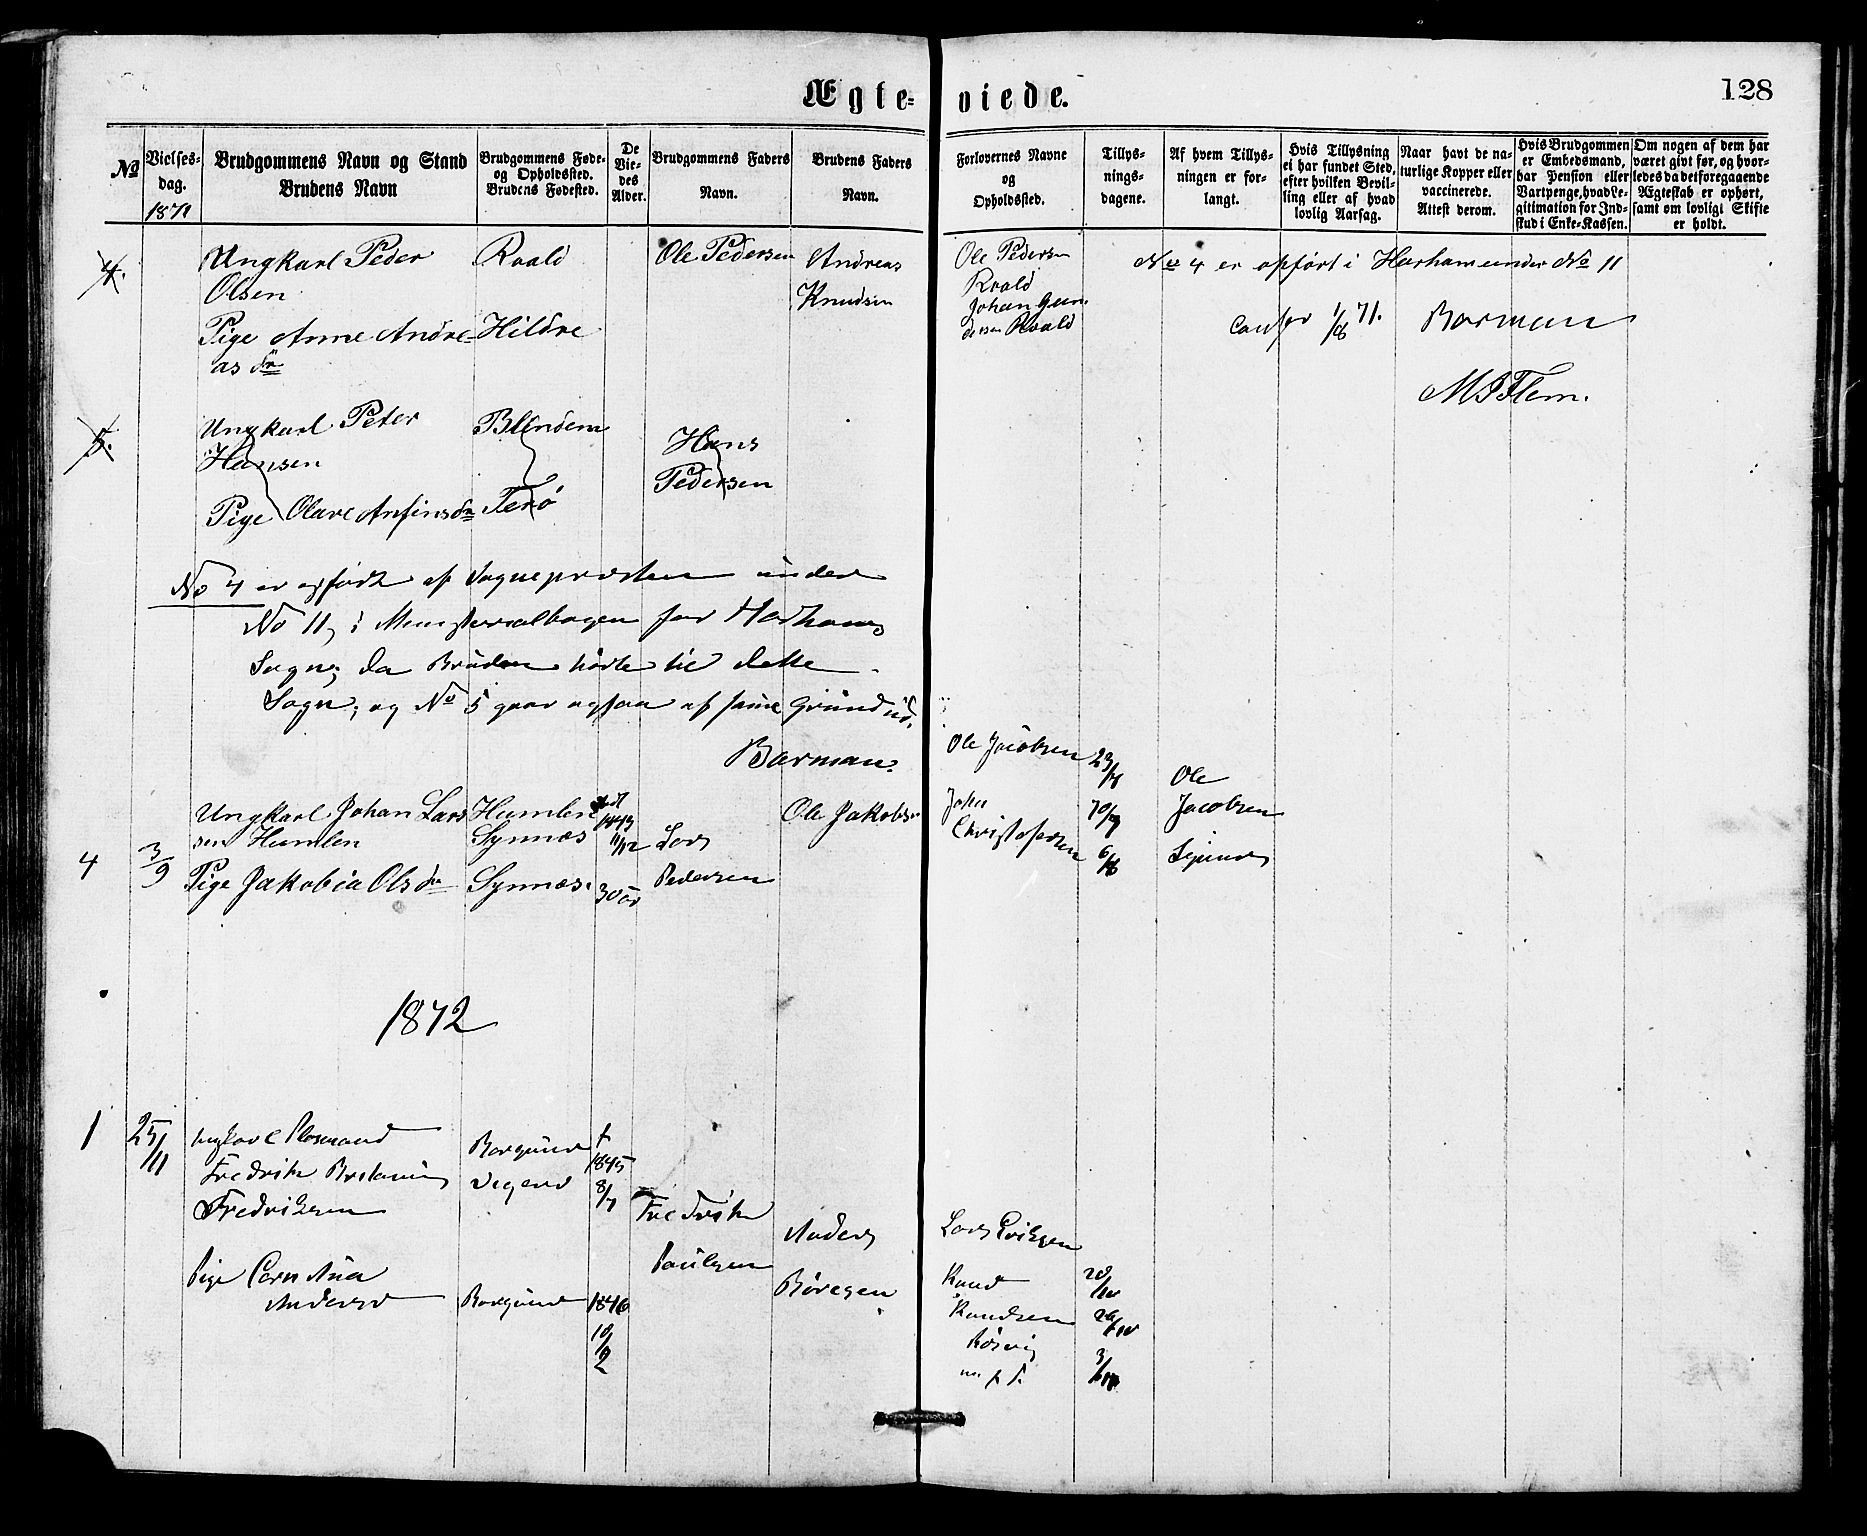 Ægte-
viede.
128
No
Vielses-
dag.
1871
Brudgommens Navn og Stand
Brudens Navn
Brudgommens Føde-
og Opholdssted.
Brudens Fødested.
De
Vie-
des
Alder.
Brudgommens Faders
Navn.
Brudens Faders
Navn.
Forlovernes Navne
og
Opholdssted.
Tillys-
nings-
dagene.
Af hvem Tillys-
ningen er for-
langt.
Hvis Tillysning
ei har fundet Sted,
efter hvilken Bevil-
ling eller af hvad
lovlig Aarsag.
Naar havt de na-
turlige Kopper eller
vaccinerede.
Attest derom.
Hvis Brudgommen
er Embedsmand,
har Pension eller
Vartpenge, hvad Le-
gitimation for Ind-
skud i Enke-Kassen.
Om nogen af dem har
været givt før, og hvor-
ledes da det foregaaende
Ægteskab er ophørt,
samt om lovligt Skifte
er holdt.
4.
Ungkarl Peder
Olsen
Roald
Ole Pedersen
Andreas
Knudsen
Ole Pedersen
Roald
Johan Gun
dersen Roald
No 4 er opført i Harham under No 11
Confr 1/8 71. Borman
Pige Anne Andre-
as dr
Hildre
M J Flem.
5.
Ungkarl Peter
Hansen
Blindem
Hans
Pedersen
Pige Olave Anfinsdr
Terø
No 4 er opført af Sognepresten under
No 11, i Ministerialbogen for Harhams
Sogn, da Bruden hørte til dette
Sogn, og No 5 gaar ogsaa af samme Grund ud.
Borman.
4
3/9
Ungkarl Johan Lars
sen Humlen
Humlen
Synnæs
1843
11/12
Lars
Pedersen
Ole Jakobsen
Ole Jacobsen
John
Christofersen
Ole
Jacobsen
Pige Jakobia Olsdr
Synnæs.
30 år
1872
1
25/11
ungkarl
Fredrik
Fredriksen
Borgund
1845
8/7
Fredrik
Paulsen
Anders
Lars Eriksen
Pige
Andersd
Borgund
1846
10/2
Knud
Knudsen